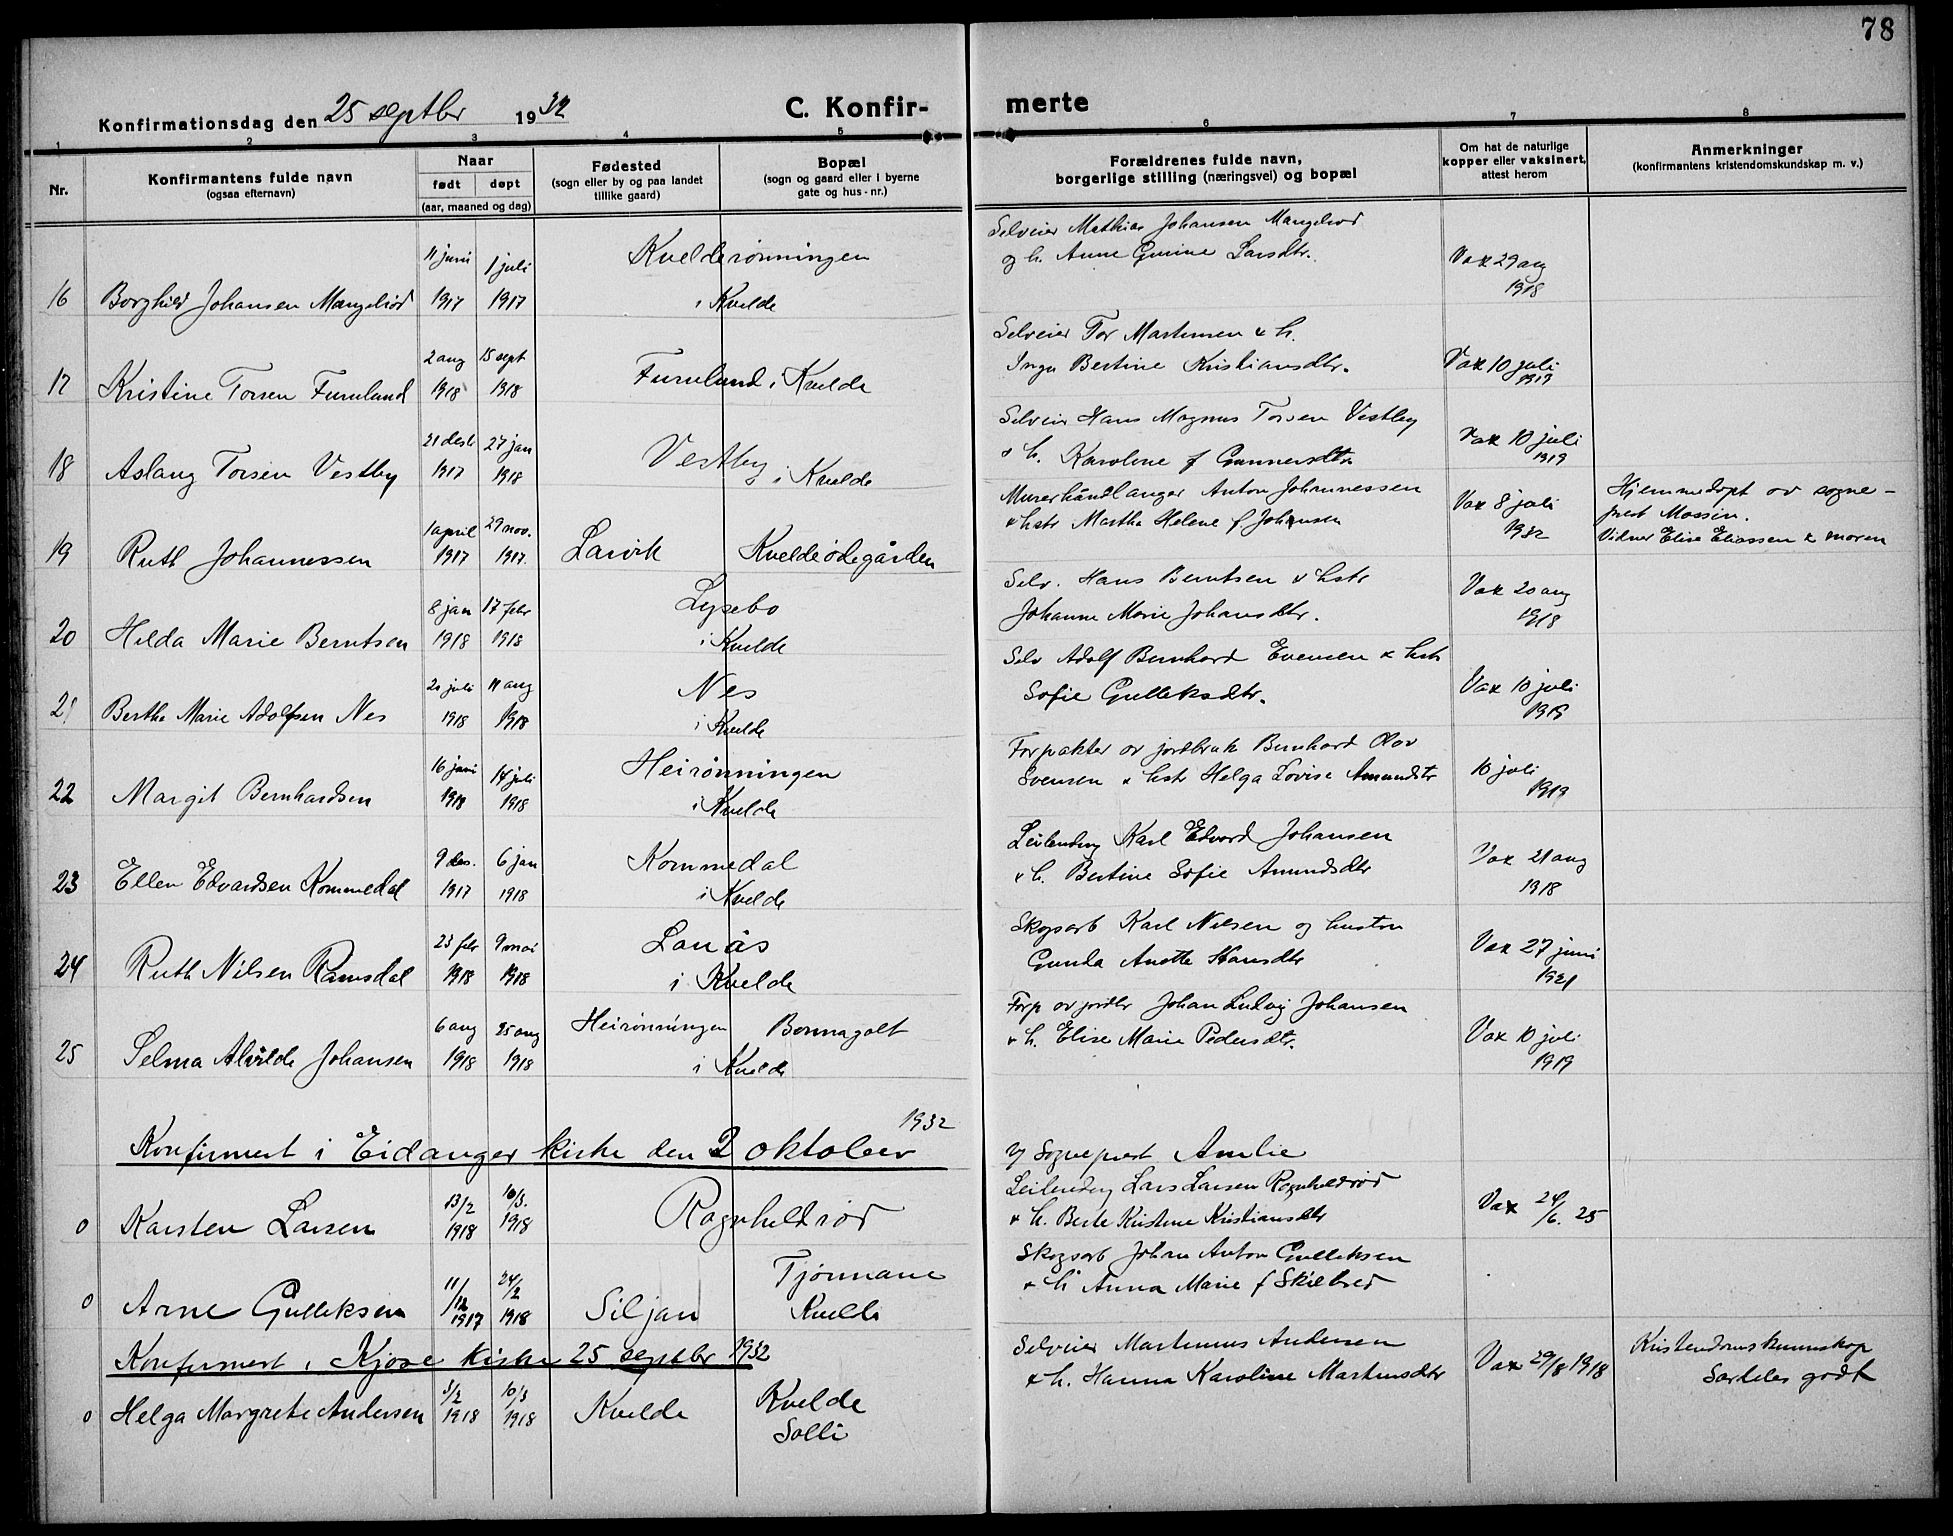 78
Konfirmationsdag den 25 septbr 1932
C. Konfirmerte
1 2 3 4 5 6 7 8
Nr.
Konfirmantens fulde navn
(ogsaa efternavn)
Naar
født døpt
(aar, maaned og dag)
Fødested
(sogn eller by og paa landet
tillike gaard)
Bopæl
(sogn og gaard eller i byerne
gate og hus-nr.)
Forældrenes fulde navn,
borgerlige stilling (næringsvei) og bopæl
Om hat de naturlige
kopper eller vaksinert,
attest herom
Anmerkninger
(konfirmantens kristendomskundskap m. v.)
16 Borghild Johansen Mangelrød 11 juni 1917 1 juli 1917 Kvelderønningen i Kvelde
Selveier Mathias Johansen Mangelrød
og h. Anne Gurine Larsdtr.
Vax 29 aug 1918
17 Kristine Torsen Furulund 2 aug 1918 15 sept 1918 Furulund i Kvelde
Selveier Tor Martinsen & h.
Inga Bertine Kristiansdtr.
Vax 10 juli 1919
18 Aslaug Torsen Vestby 21 desbr 1917 27 jan 1918 Vestby i Kvelde
Selveier Hans Magnus Torsen Vestby
& h. Karoline f Gunnersdtr
Vax 10 juli 1919
19 Ruth Johannessen 1 april 1917 29 nov. 1917. Larvik Kveldeødegården
Murerhåndlanger Anton Johannessen
& hstr Martha Helene f. Johansen
Vax 8 juli 1932
Hjemmedøpt av sogne-
prest Mossin.
Vidner Elise Eliassen & moren
20 Helda Marie Berntsen 8 jan 1918 17 febr 1918 Lysebo i Kvelde
Selv. Hans Berntsen & hstr
Johanne Marie Johansdtr.
Vax 20 aug 1918
21 Berthe Marie Adolfsen Nes 21 juli 1918 11 aug 1918 Nes i Kvelde
Selv Adolf Bernhard Evensen & hstr
Sofie Gulleksdtr.
Vax 10 juli 1919
22 Margit Bernhardsen 16 juni 1918 14 juli 1918 Heirønningen i Kvelde
Forpakter av jordbruk Bernhard Olav
Svensen & hstr Helga Lovise Amundstr
10 juli 1919
23 Ellen Edvardsen Kommedal 9 des. 1917 6 jan 1918 Kommedal i Kvelde
Leilending Karl Edvard Johansen
& h. Bertine Sofie Amundsdtr
Vax 21 aug 1918
24 Ruth Nilsen Ramsdal 23 febr 1918 9 mai 1918 Lanås i Kvelde
Skogsarb Karl Nilsen og hustru
Gunda Anette Hansdtr
Vax 27 juni 1921
25 Selma Alvilde Johansen 6 aug 1918 25 aug 1918 Heirønningen Bonnagolt i Kvelde
Forp av jordbr Johan Ludvig Johansen
& h. Elise Marie Pedersdtr.
Vax 10 juli 1919
Konfirmert i Eidanger kirke den 2 oktober 1932
v/ Sogneprest Amlie
0 Karsten Larsen 13/2 1918 10/3. 1918 Ragnhildrød
Leilending Lars Larsen Ragnhildrød
& h. Berte Kristine Kristiansdtr
Vax 24/6. 25
0 Arne Gulleksen 11/12 1917 24/2 1918 Siljan Tjønnane Kvelde
Skogsarb Johan Anton Gulleksen
& h Anna Marie f Skilbred
Konfirmert i Kjose kirke 25 septbr 1932
0 Helga Margrete Andersen 3/2 1918 10/3 1918 Kvelde Kvelde Solli
Selveier Martinius Andersen
& h. Hanna Karoline Martinsdtr
Vax 29/8 1918
Kristendomskunnskap
Særdeles godt